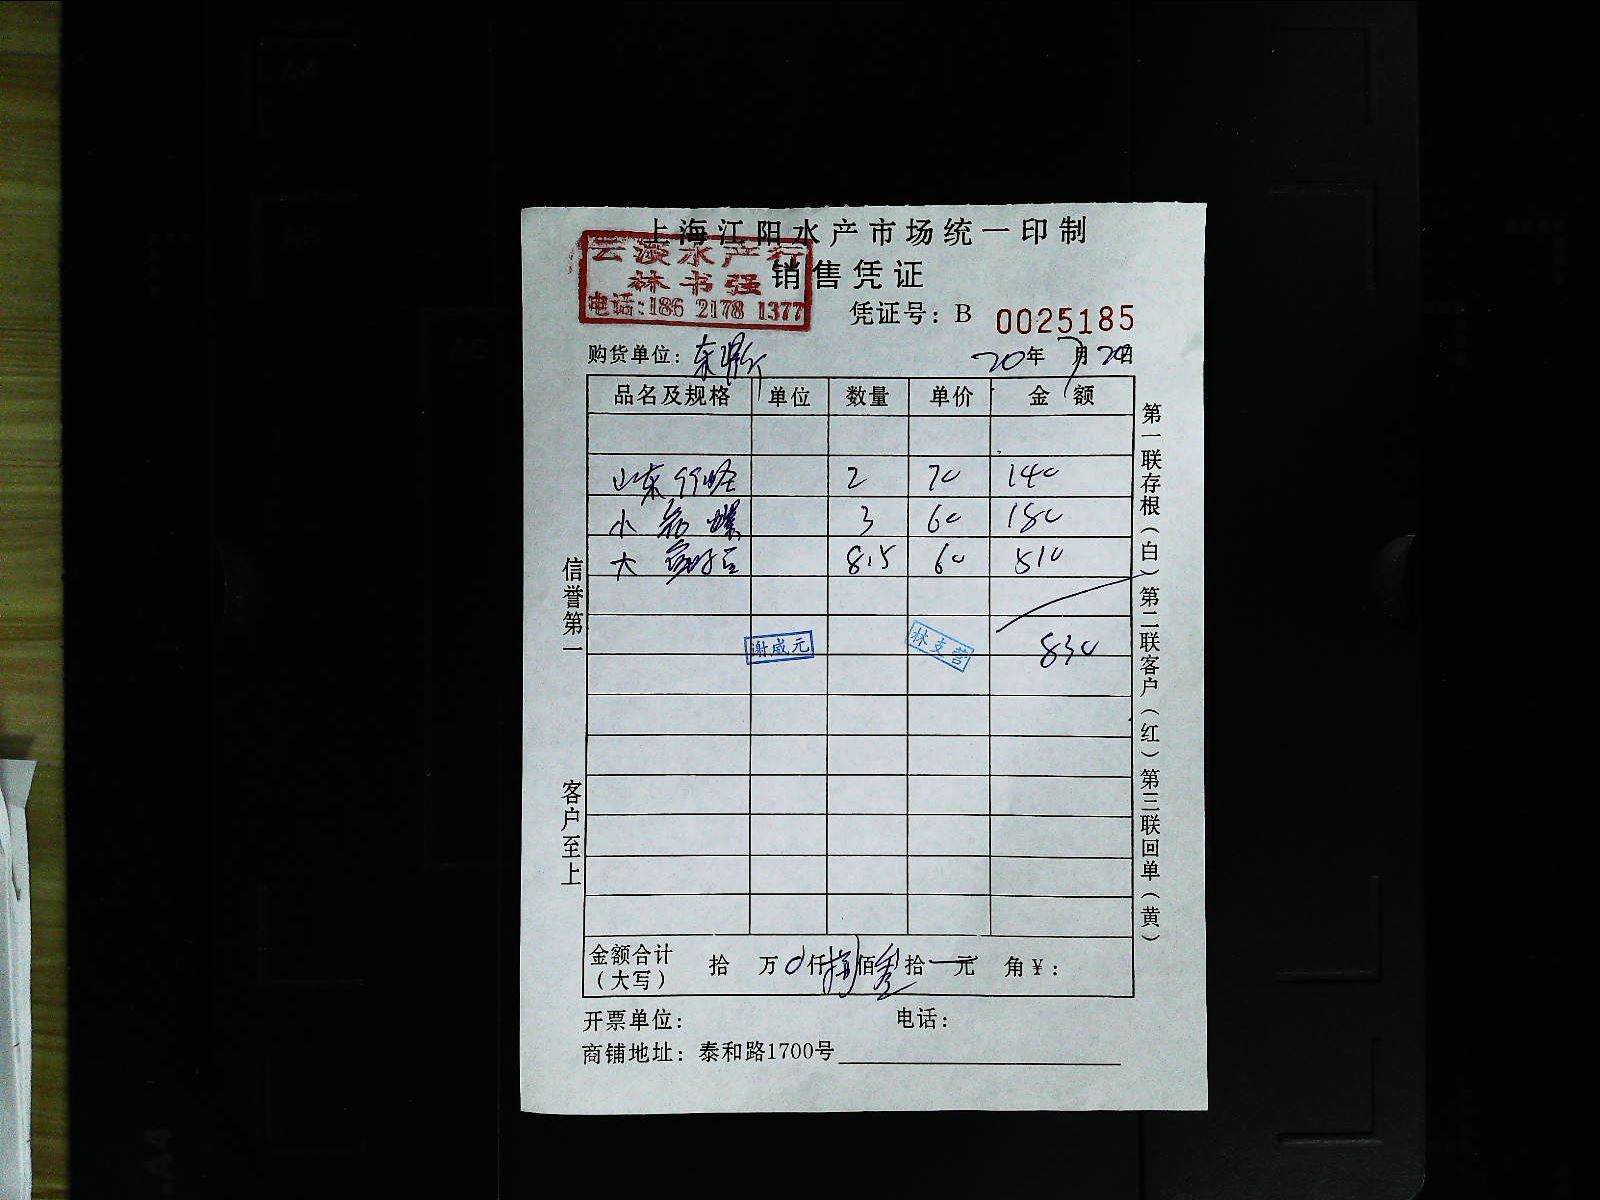 上海江阳水产市场统一印制
云淡水产行
林书强
电话:186 2178 1377
销售凭证
凭证号: B 0025185
购货单位:
20年 7月20日
品名及规格 单位 数量 单价 金额
山东 2 70 140
小 螺 3 60 180
大 8.5 60 510
谢成元 林支营 830
金额合计（大写） 拾 万 0仟捌佰叁拾 元 角¥:
开票单位: 电话:
商铺地址: 泰和路1700号
信誉第一 客户至上
第一联存根（白）第二联客户（红）第三联回单（黄）